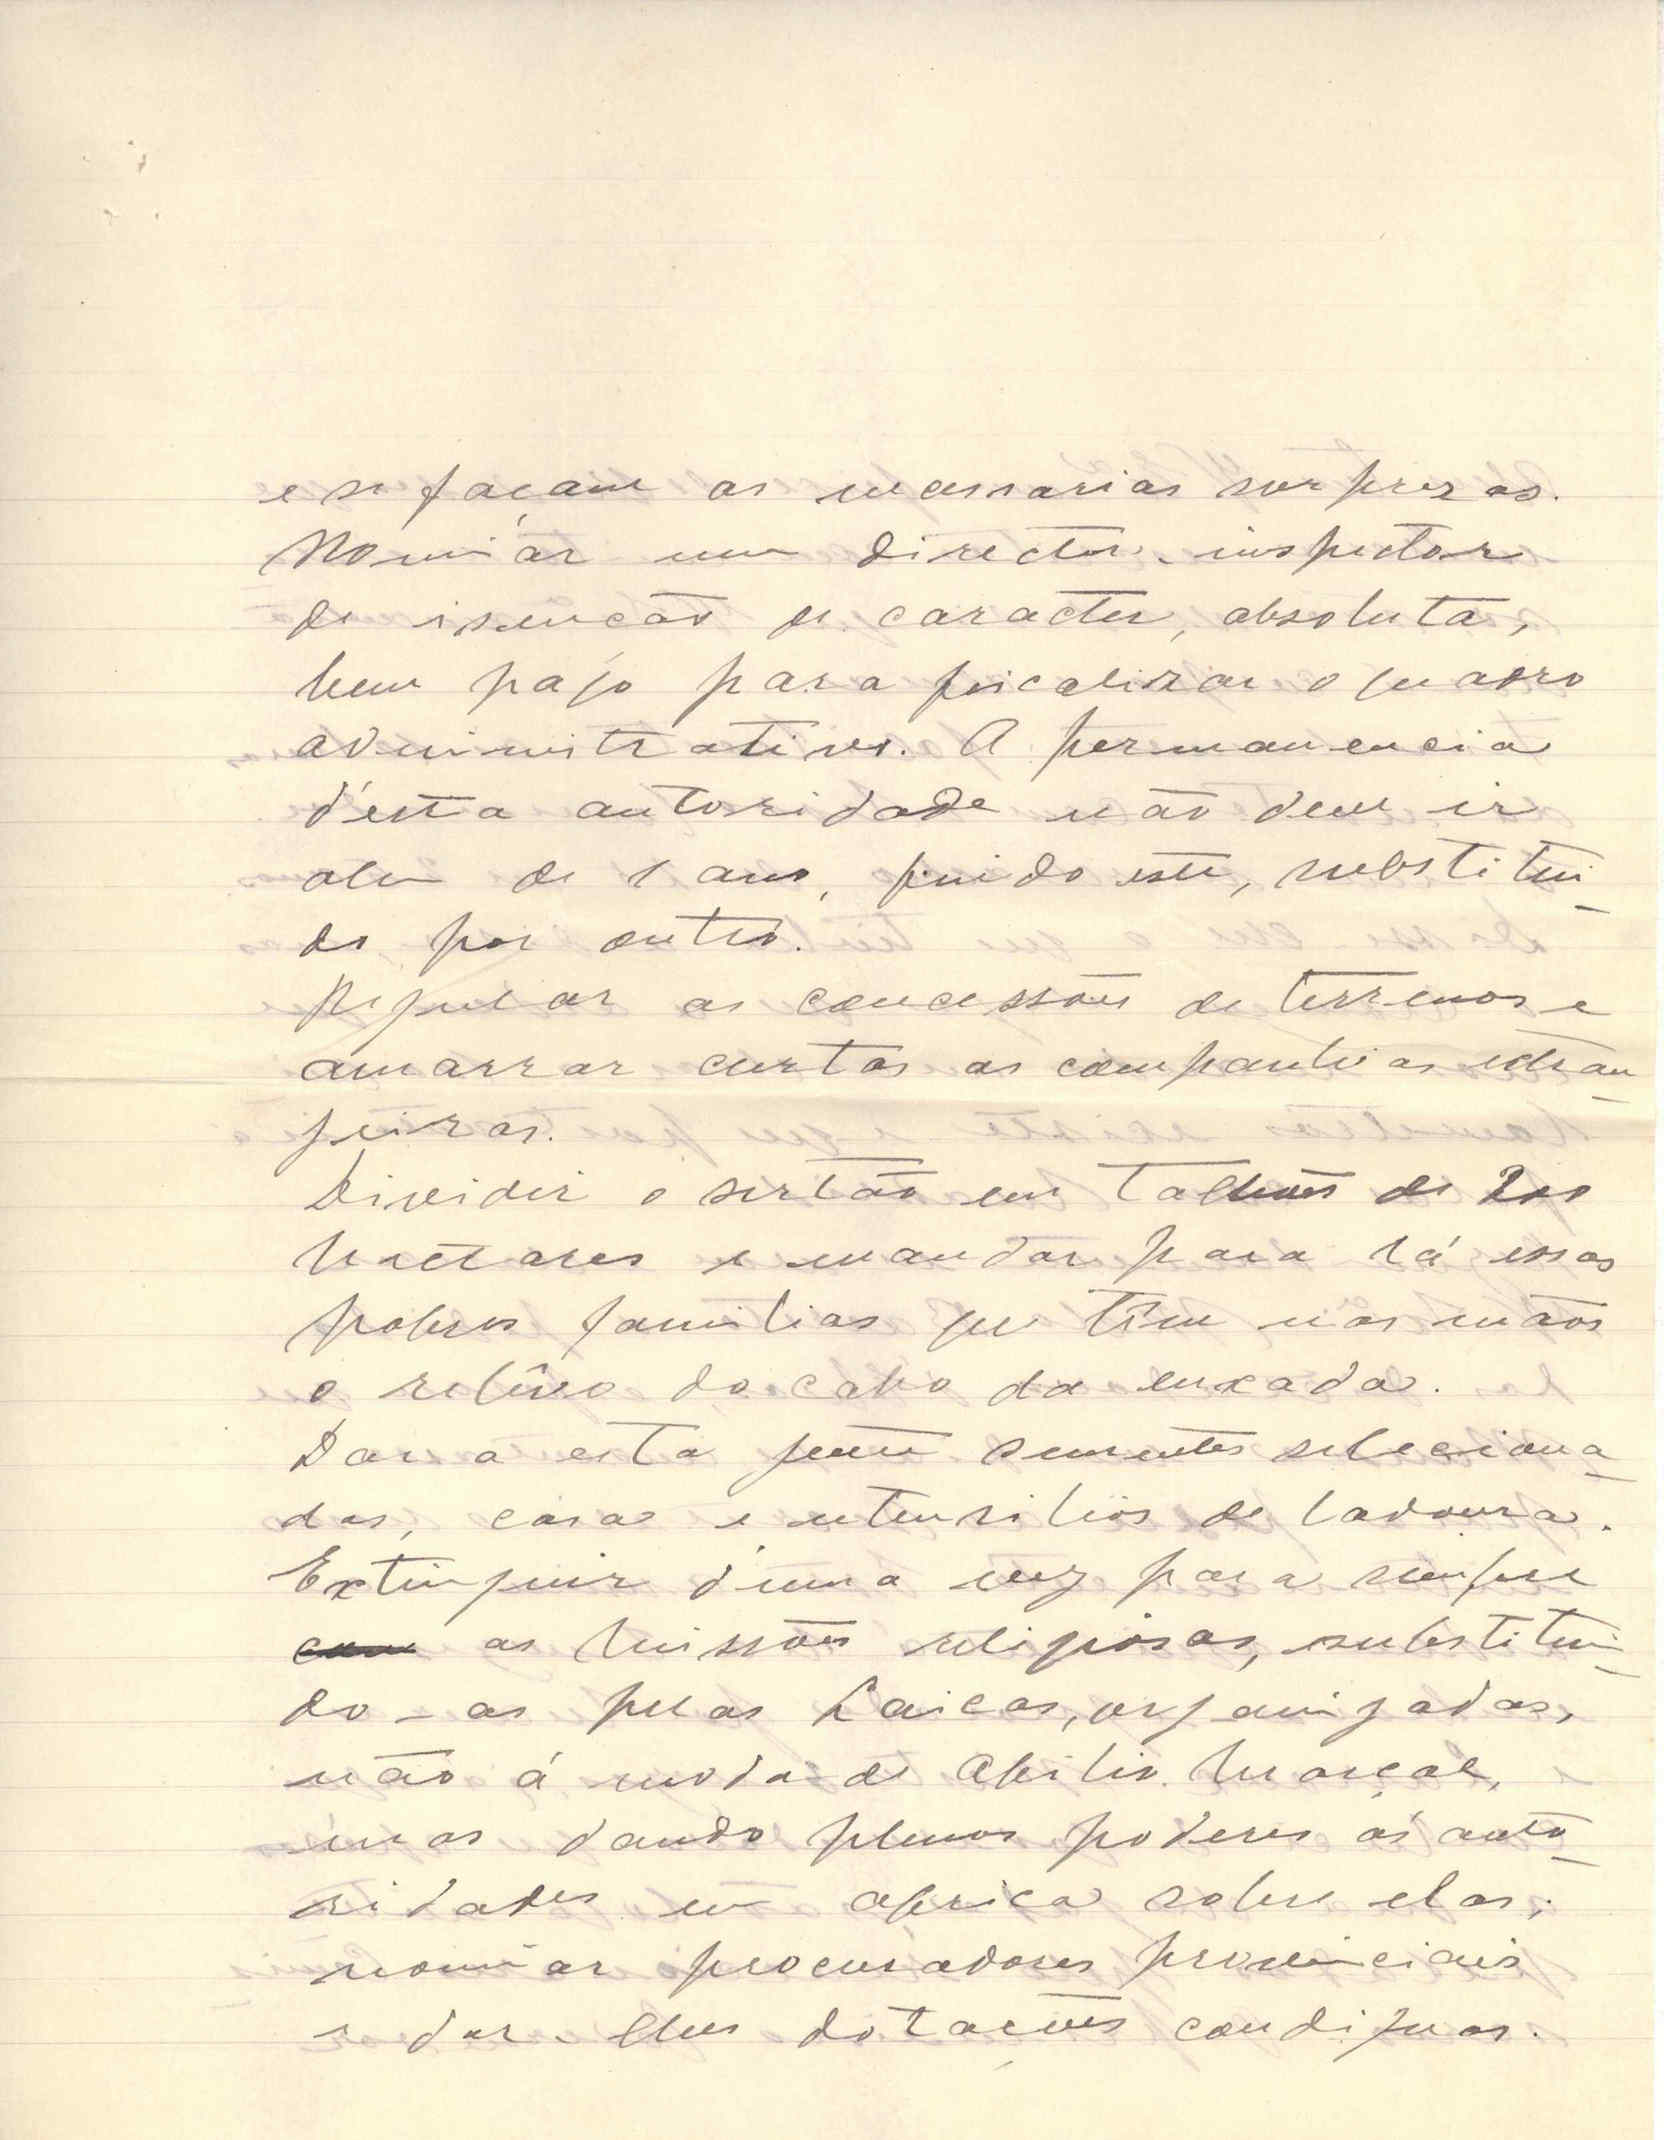 e se façam as necessarias surprezas.
Nomiár um director-inspector
de isenção de caracter, absoluta,
bem pago para fiscalizar o quadro
administrativo. A permanencia
d'esta autoridade não deve ir
alem de 1 ano, findo este, substitui-
do por outro.
Regular as concessões de terrenos e
amarrar curtas as companhias estran-
geiras.
Dividir o sertão em talhões de 200
hectares e mandar para lá essas
pobres familias que têm nas mãos
o relêvo do cabo da enxada.
Dar a esta gente sementes seleciona-
das, casa e utensilios de lavoura.
Extinguir d'uma vez para sempre
as missões religiosas, substituin-
do-as pelas Laicas, organizadas,
não á moda de Abilio Marçal,
mas dando plenos poderes ás auto-
ridades em Africa sobre elas;
nomiar procuradores provinciais
e dar-lhes dotações condignas.